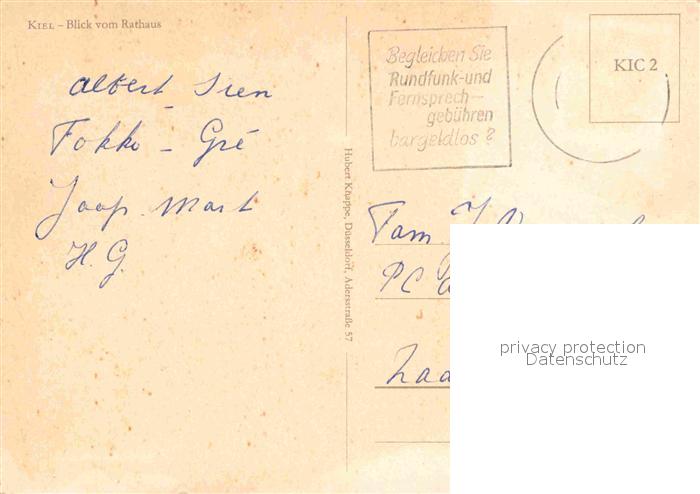 KIEL – Blick vom Rathaus
Albert – Sien
Fokko – Gré
Jaap Mart
H. G.
Hubert Knappe, Düsseldorf, Adersstraße 57
Begleichen Sie
Rundfunk-und
Fernsprech-
gebühren
bargeldlos?
KIC 2
Fam.
PC
Zaa
privacy protection
Datenschutz